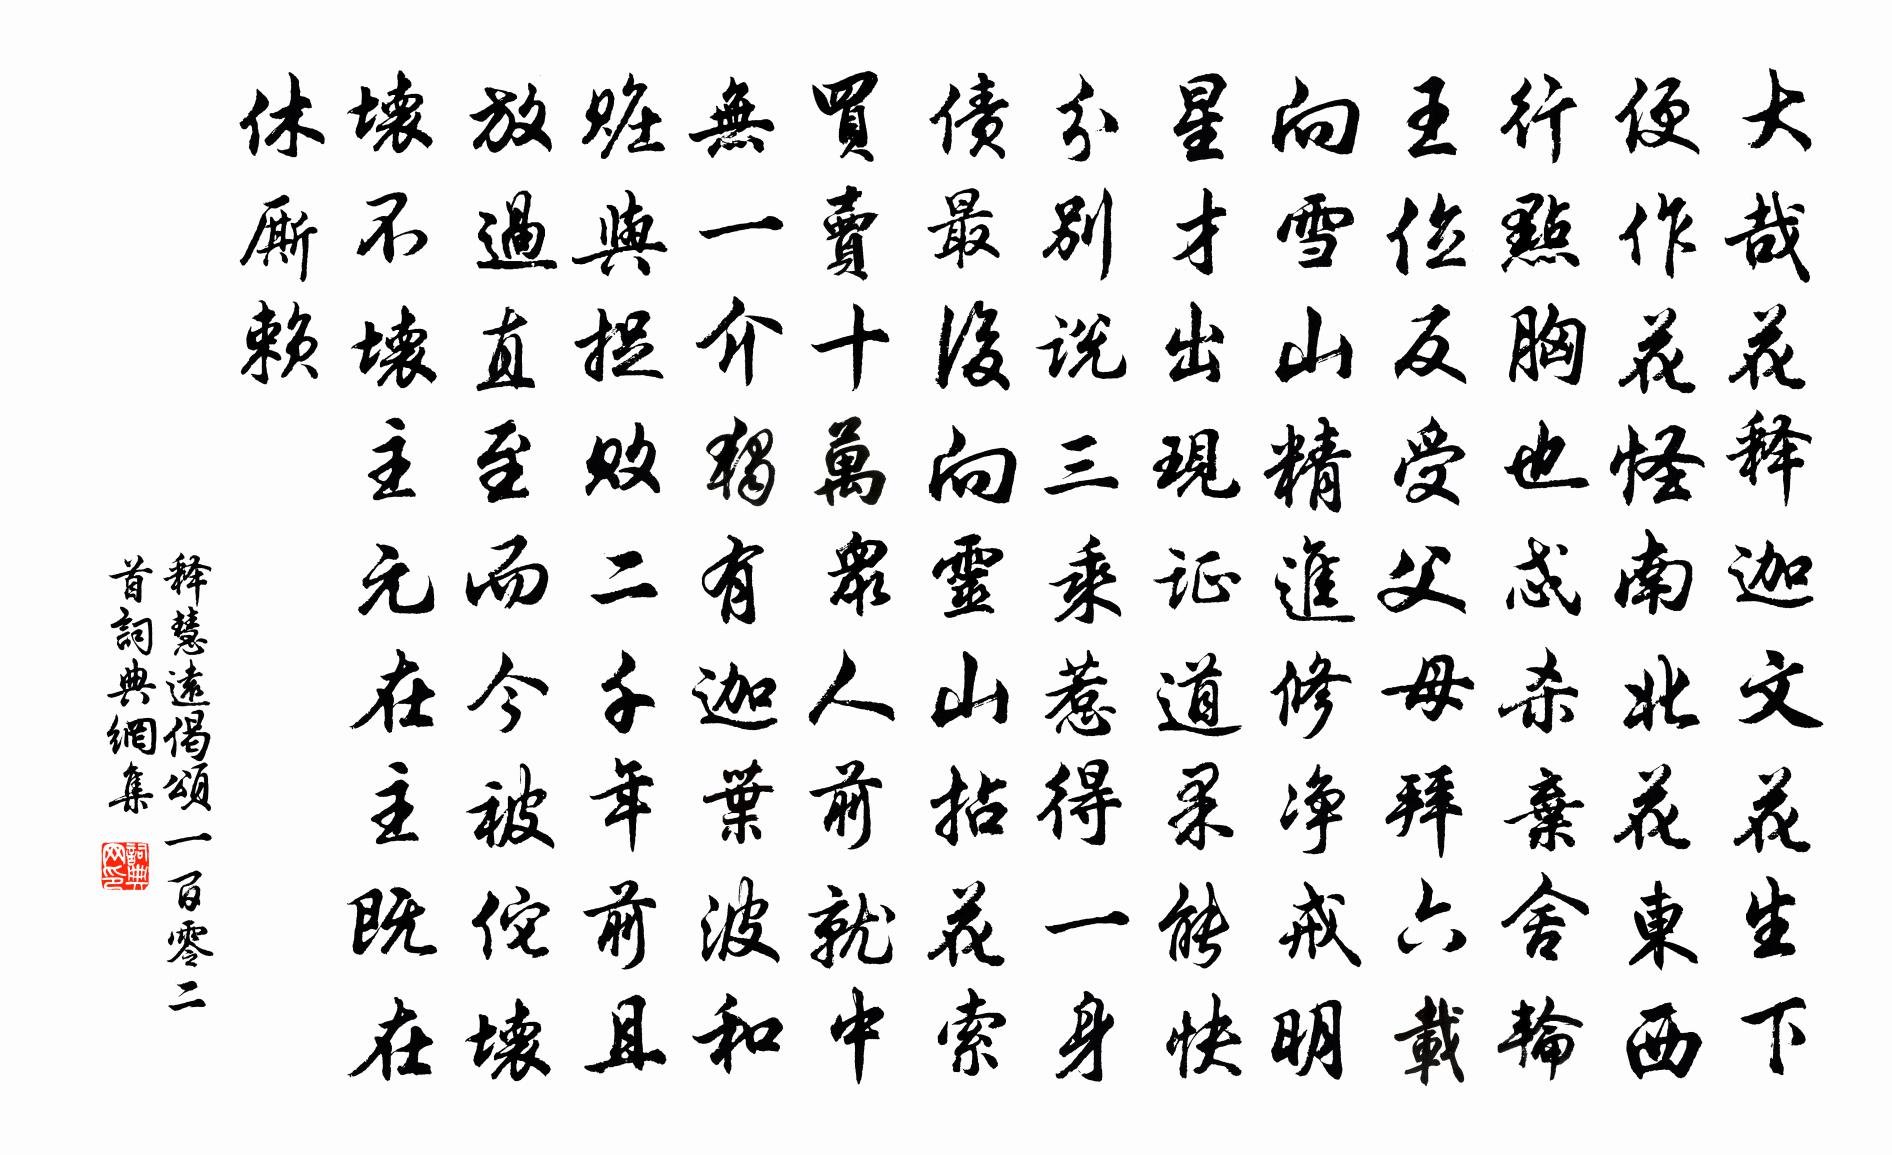 大哉花释迦文花生下
便作花怪南北花東西
行點胸也忒杀棄舍輪
王位反受父母拜六載
向雪山精進修净戒明
星才出現证道果能快
分別说三乘惹得一身
债最後向靈山拈花索
買賣十萬眾人前就中
無一介獨有迦葉波和
賍與捉敗二千年前且
放過直至而今被佗壞
壞不壞主元在主既在
休厮赖
释慧遠偈頌一百零二
首詞典網集